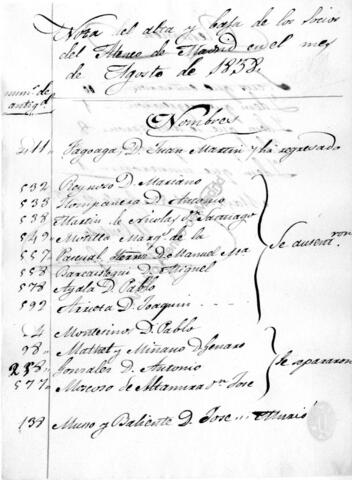 Nota del alta y baja de los socios
del Ateneo de Madrid en el mes
de Agosto de 1838.
num.º de
antigd.
Nombres
411 Fagoaga D. Juan Martin y há regresado
532 Reynoso D. Mariano
535 Kompanera D. Antonio
538 Martin de Nicolas D. Santiago
549 Motilla Marqs. de la
557 Pascual D. Manuel Ma
558 Barcaistegui D. Miguel
578 Ayala D. Pablo
592 Arieta D. Joaquin
Se ausentaron
54 Montesinos D. Pablo
98 Mathet y Miñano D. Genaro
258 Gonzalez D. Antonio
577 Moscoso de Altamira Dn. Jose
Se separaron
138 Muso y Baliente D. Jose ... Murió